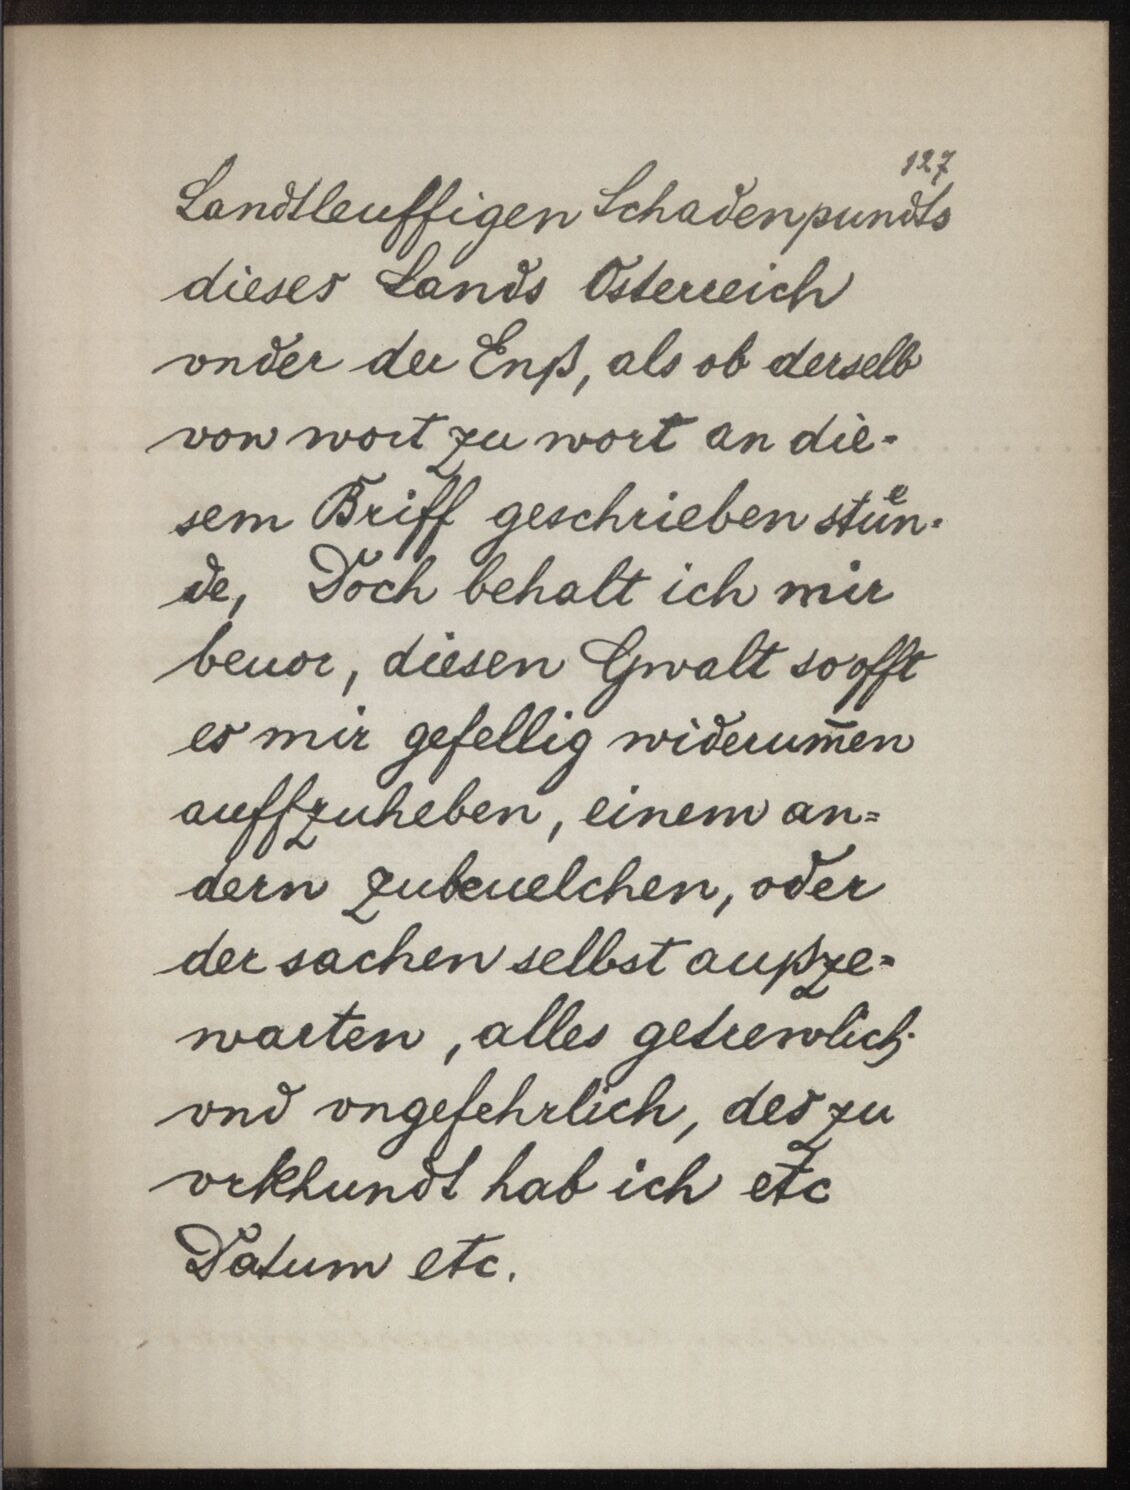 127
Landtleuffigen Schadenpundts
dieses Lands Österreich
vnder der Enß, als ob derselb
von wort zu wort an die-
sem Briff geschrieben stuͤn-
de, Doch behalt ich mir
beuor, diesen Gwalt so offt
es mir gefellig widerum̄en
auffzuheben, einem an=
dern zubeuelchen, oder
der sachen selbst außze=
warten, alles getrewlich
vnd vngefehrlich, des zu
vrkhundt hab ich etc
Datum etc.